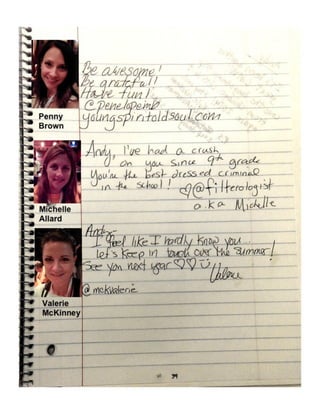 Be awesome!
Be grateful!
Have fun!
@penelopemb
youngspiritoldsoul.com
Penny
Brown
Andy, I've had a crush
on you since 9th grade
You're the best dressed criminal
in the school!
♡@filterologist
a.k.a Michelle
Michelle
Allard
Andy-
I feel like I hardly know you
let's keep in touch over the summer!
See you next year ♡♡☺
Valerie
@mckvalerie
Valerie
McKinney